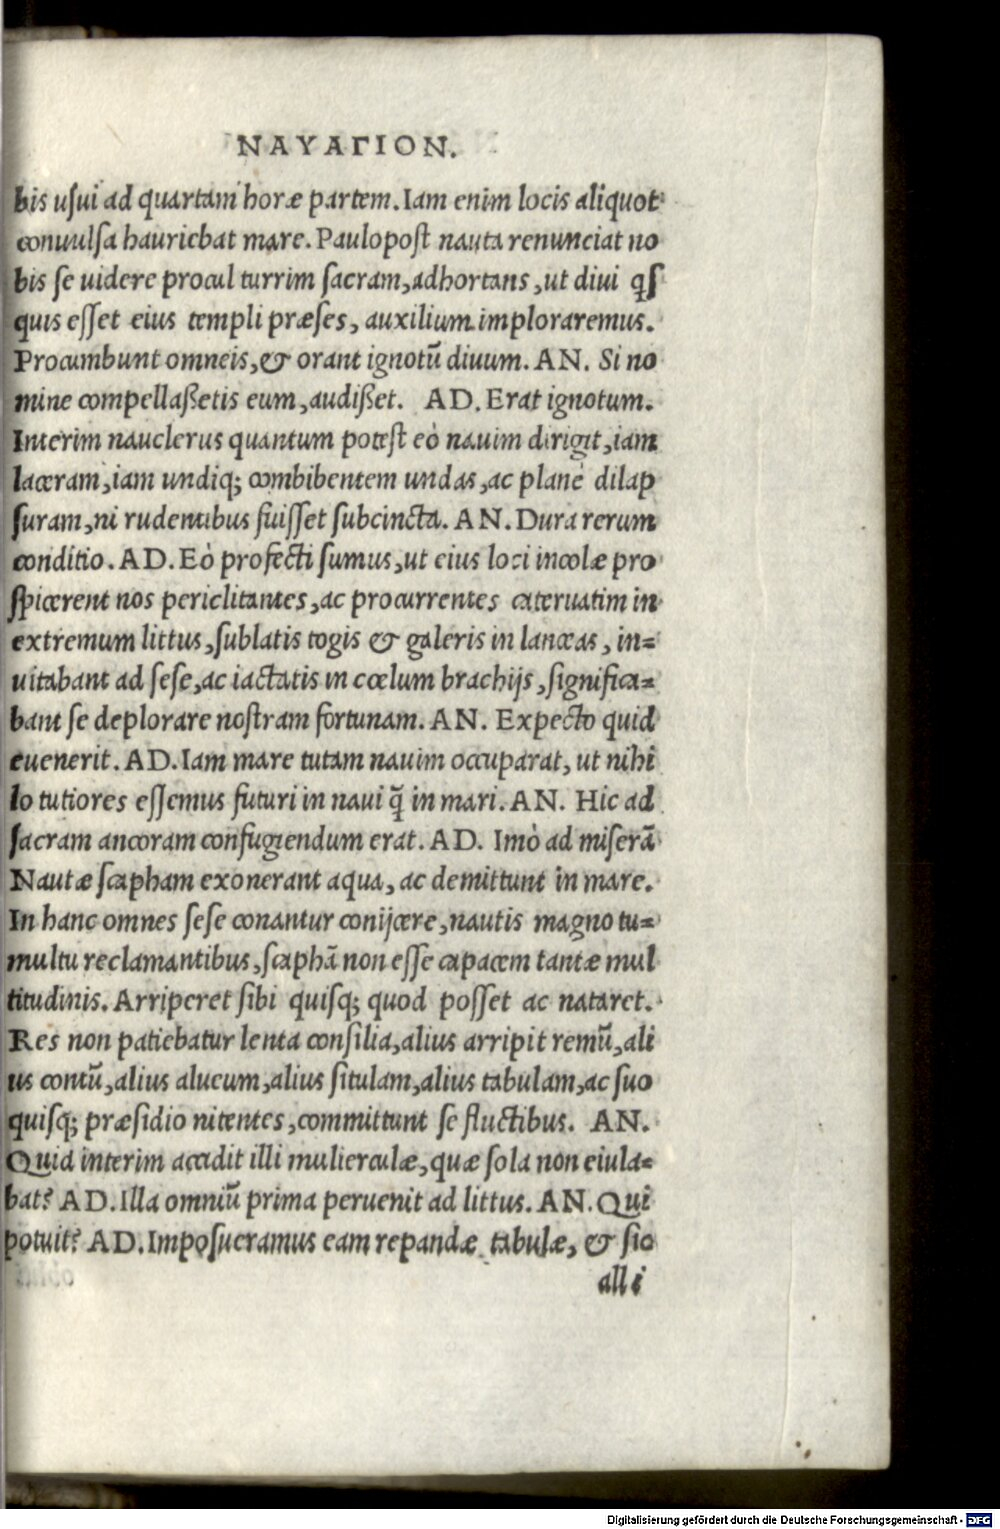 ΝΑΥΑΓΙΟΝ.
bis usui ad quartam horæ partem. Iam enim locis aliquot
conuulsa hauriebat mare. Paulopost nauta renunciat no
bis se uidere procul turrim sacram, adhortans, ut diui qs
quis esset eius templi præses, auxilium imploraremus.
Procumbunt omneis, & orant ignotū diuum. AN. Si no
mine compellaßetis eum, audißet. AD. Erat ignotum.
Interim nauclerus quantum potest eò nauim dirigit, iam
laceram, iam undiq; combibentem undas, ac planè dilap
suram, ni rudentibus fuisset subcincta. AN. Dura rerum
conditio. AD. Eò profecti sumus, ut eius loci incolæ pro
spicerent nos periclitantes, ac procurrentes cateruatim in
extremum littus, sublatis togis & galeris in lanceas, in=
uitabant ad sese, ac iactatis in cœlum brachijs, significa=
bant se deplorare nostram fortunam. AN. Expecto quid
euenerit. AD. Iam mare tutam nauim occuparat, ut nihi
lo tutiores essemus futuri in naui q̄ in mari. AN. Hic ad
sacram ancoram confugiendum erat. AD. Imò ad miserā
Nautæ scapham exonerant aqua, ac demittunt in mare.
In hanc omnes sese conantur conijcere, nautis magno tu=
multu reclamantibus, scaphā non esse capacem tantæ mul
titudinis. Arriperet sibi quisq; quod posset ac nataret.
Res non patiebatur lenta consilia, alius arripit remū, ali
us contū, alius alueum, alius situlam, alius tabulam, ac suo
quisq; præsidio nitentes, committunt se fluctibus. AN.
Quid interim accidit illi mulierculæ, quæ sola non eiula=
bat? AD. Illa omniū prima peruenit ad littus. AN. Qui
potuit? AD. Imposueramus eam repandæ tabulæ, & sic
alli
Digitalisierung gefördert durch die Deutsche Forschungsgemeinschaft - DFG